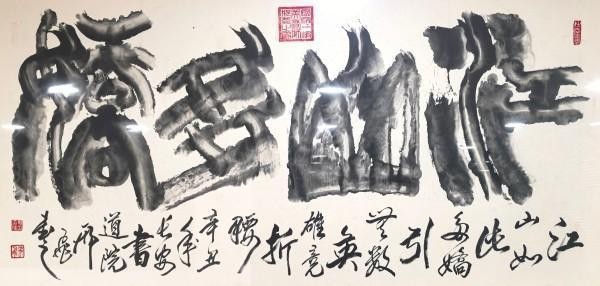 江山多嬌
江
山如
此
多嬌
引
無數
英
雄竟
折
腰
辛丑
年
长安
書
道院